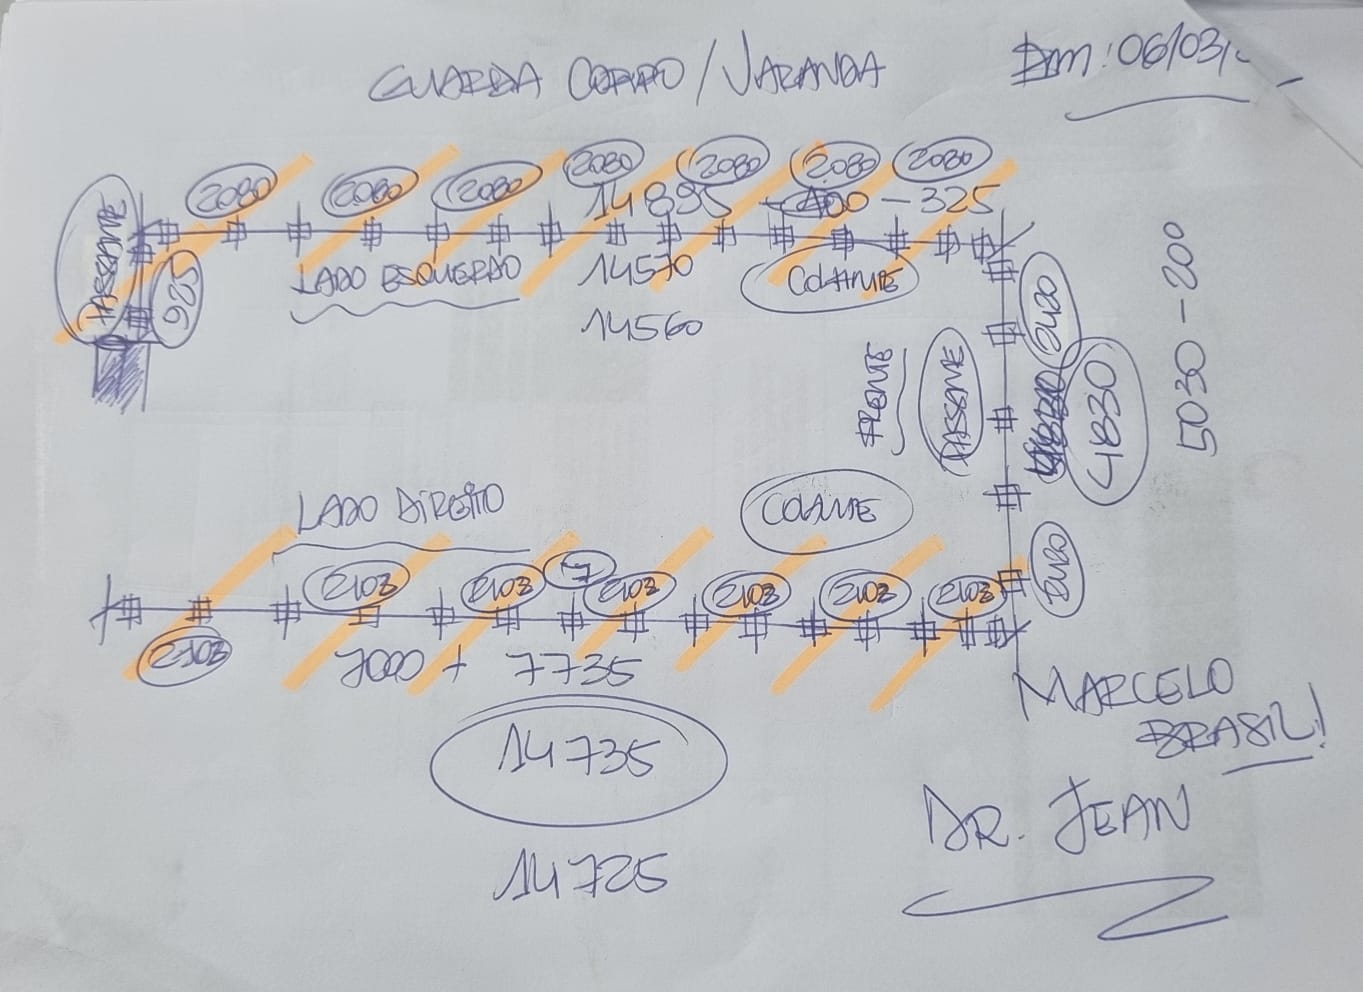 GUARDA CORPO / VARANDA
Em: 06/03/
2080 2080 2080 2080 2080 2080 2080
14895 - 400 - 325
PASSANTE
925
LADO ESQUERDO
14570
COLANTE
14560
2420
FRENTE
PASSANTE
4830
5030 - 200
2420
LADO DIREITO
COLANTE
7
2103 2103 2103 2103 2103 2103
2103
7000 + 7735
14735
14725
MARCELO
BRASIL!
DR. JEAN